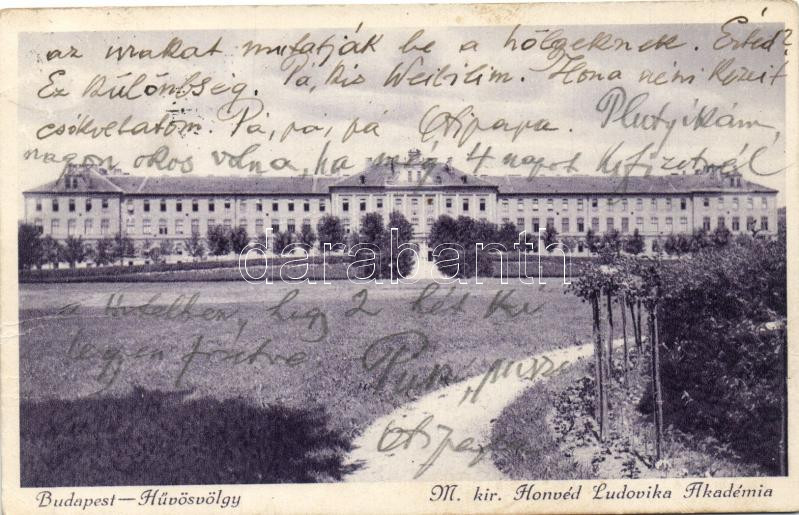 az urakat mutatják be a hölgyeknek. Érted?
Ez különbség. Pá, kis Weibilim. Hona néni kezeit
csókoltatom. Pá, pa, pá Otipapa. Plutyikám,
nagon okos volna, ha még 4 napot kifizetnél
darabanth
a hotelben, hogy 2 hét ki
legyen fizetve. Pusz, pussz
Otipapa
Budapest—Hűvösvölgy
M. kir. Honvéd Ludovika Akadémia